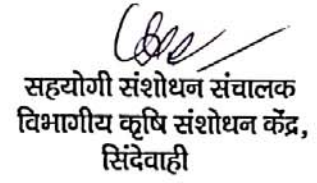 सहयोगी संशोधन संचालक
विभागीय कृषि संशोधन केंद्र,
सिंदेवाही